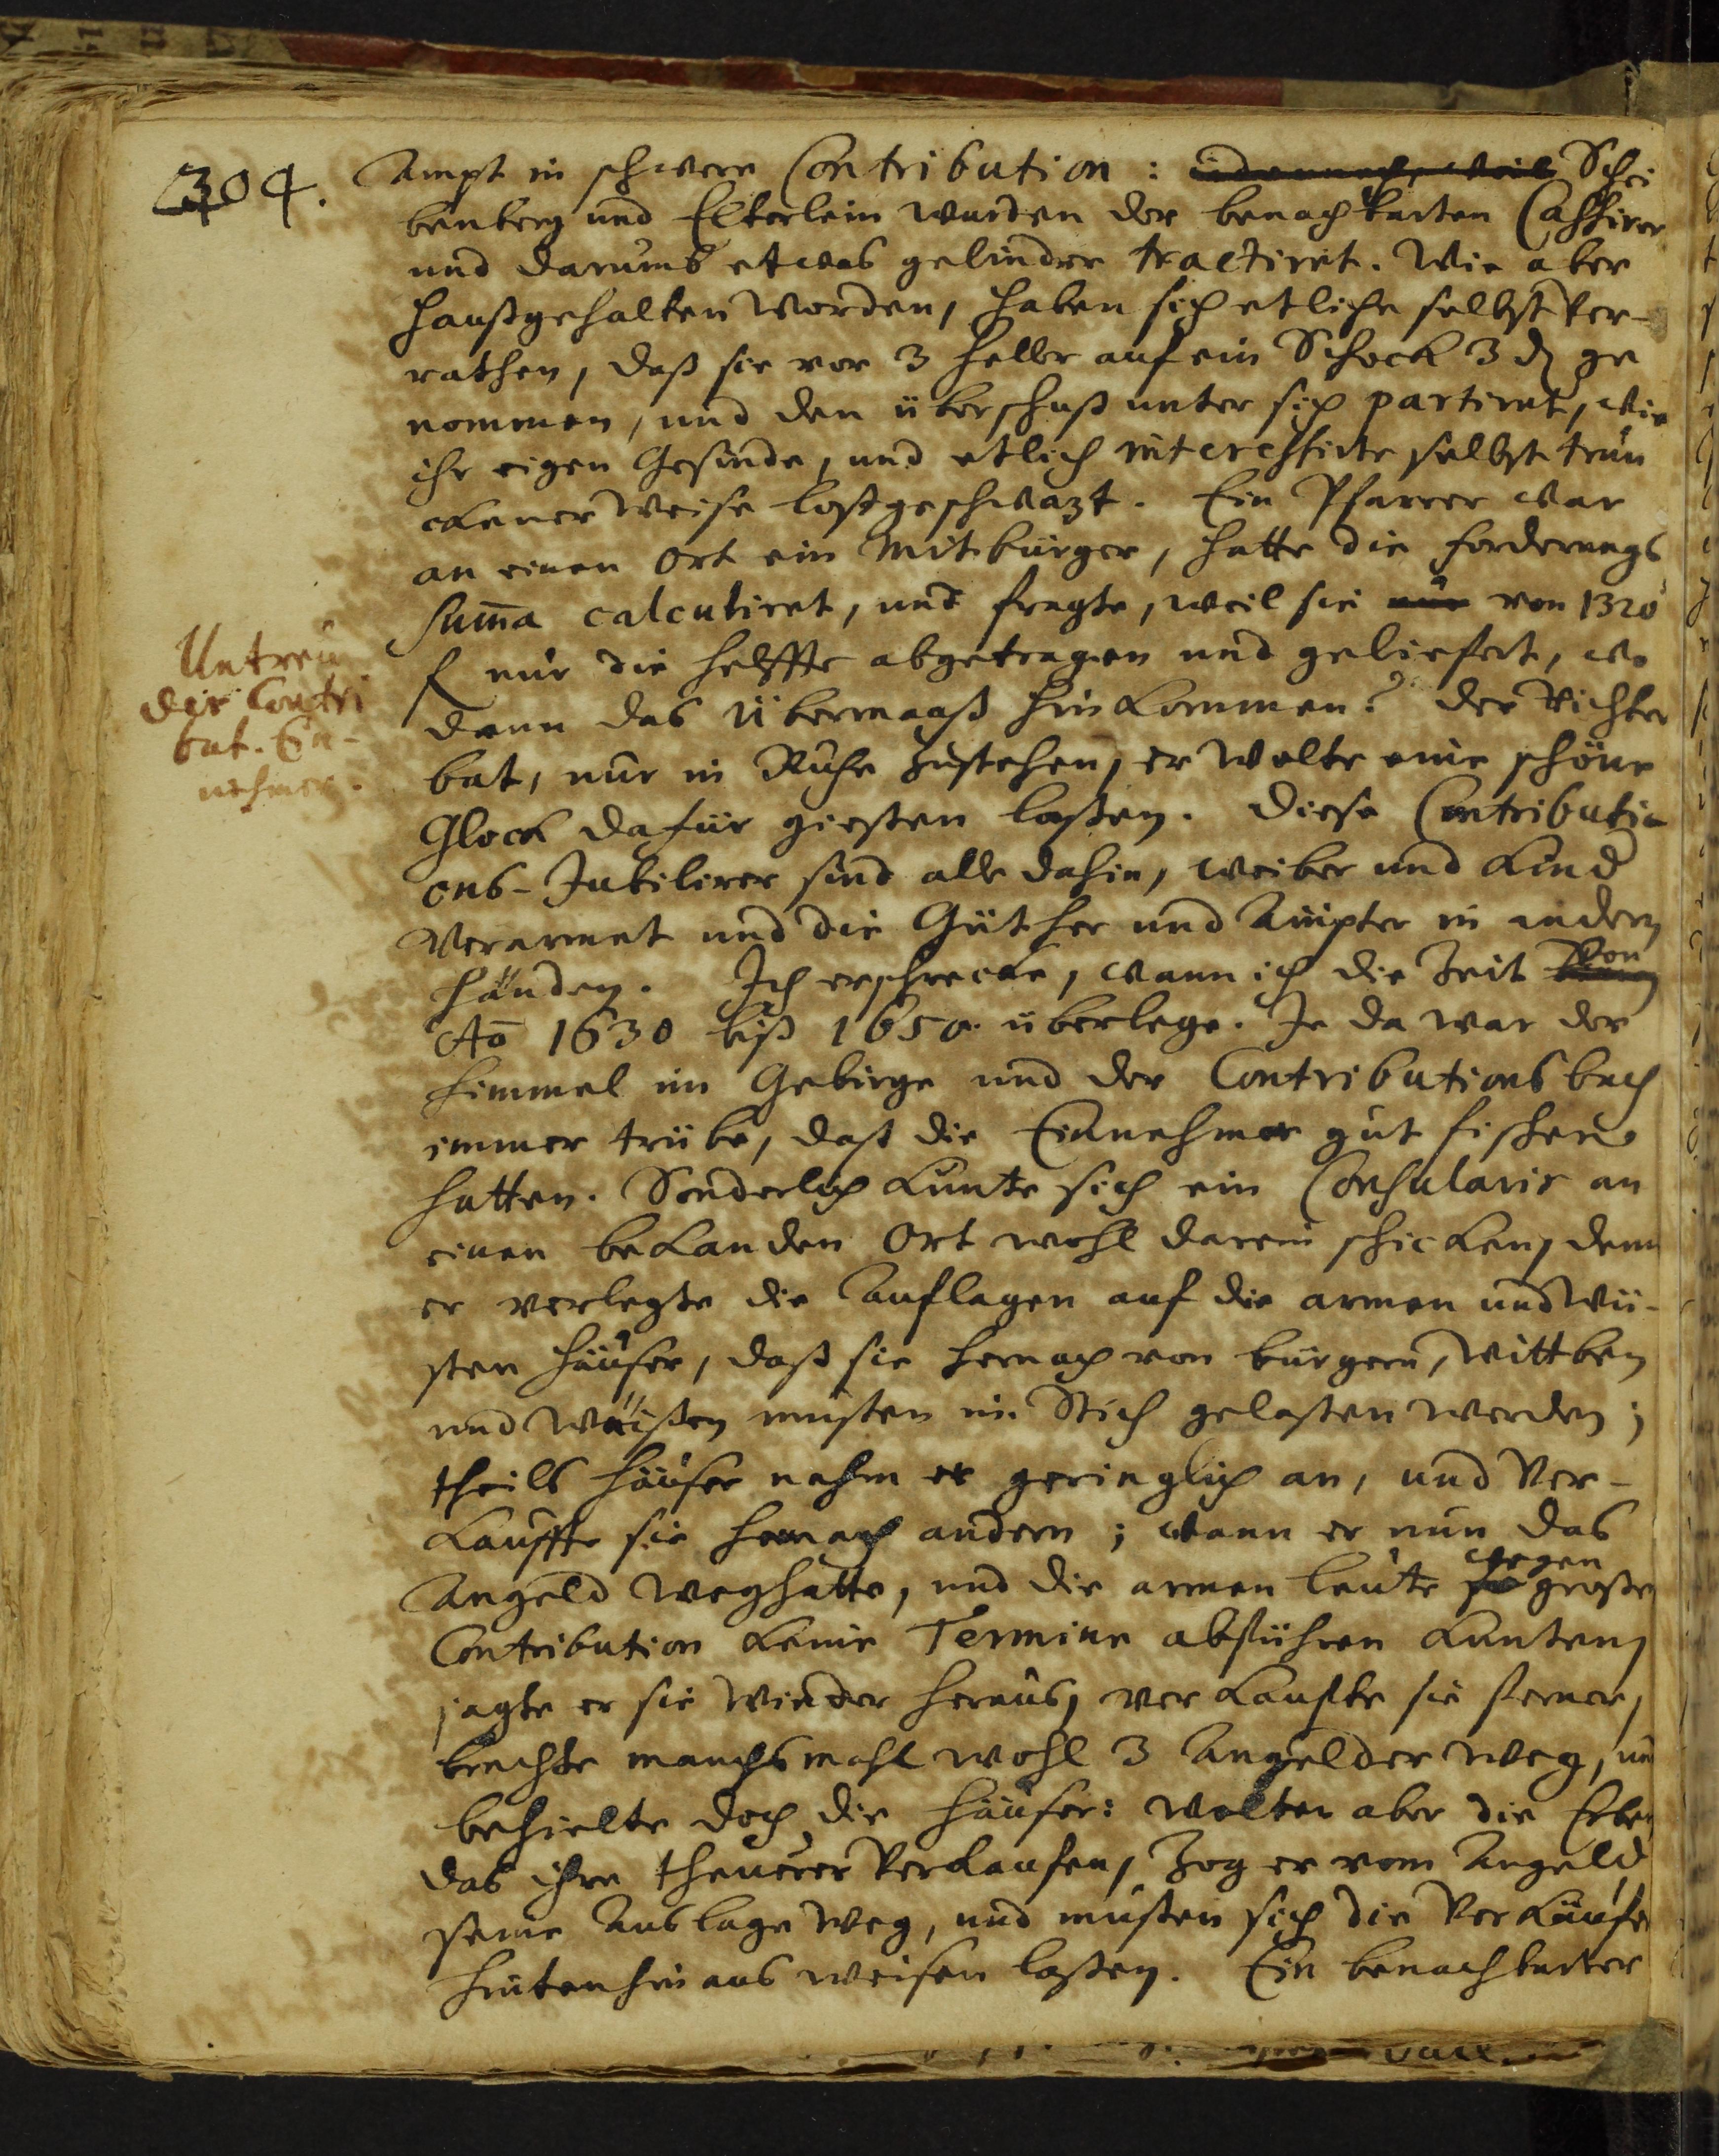 304.
Ampt in schwere Contribution: Schei
benberg und Elterlein wurden der benachbarten Cassirer
und darumb etwas gelinder tractiret. Wie aber
haußgehalten worden, haben sich etliche selbst ver-
rathen, daß sie vor 3 Heller auf ein Schock 3 ₰ ge
nommen, und den überschuß unter sich partiret, wie
ihr eigen Gesinde, und etlich interessirte selbst trun
ckener Weise loßgeschwazt. Ein Pfarrer war
an einen Ort ein Mitbürger, hatte die forderungs
Sum̅a calculiret, und fragte, weil sie nur von 1320
f nur die helffte abgetragen und geliefert, wo
dann das Übermaaß hin kommen? der Richter
bat, nur in Ruhe zustehen, er wolte eine schöne
Glock dafür giesten laßen. Diese Contributi
ons-Jubilirer sind alle dahin, weiber und Kind
verarmet und die Güther und Ämpter in andern
händen. Ich erschrecke, wann ich die Zeit von
Ao 1630 biß 1650. überlege. Je da war der
Himmel im Gebirge und der Contributions bach
immer trübe, dast die Einnehmer gut fischen
hatten. Sonderlich kunte sich ein Consularis an
einen bekanden Ort wohl darein schicken, denn
er verlegte die Auflagen auf die armen und wü-
sten häußer, daß sie hernach von bürgern, Wittben
und Wäisen musten im Stich gelasten werden;
theils häuser nahm er geringlich an, und ver-
kauffte sie hernach andern; wann er nun das
Angeld weghatte, und die armen leute wegen große
Contribution keine Termine abführen kunten,
jagte er sie wieder heraus, verkaufte sie ferner,
brachte manchsmahl wohl 3 Angelder weg, un
behielte doch die häuser: wolten aber die Erben
das ihre theuerer verkaufen, zog er vom Angeld
seine Auslage weg, und musten sich die Verkäufer
hintenhinaus weisen laßen. Ein benachbarter
Untreu
der Contri
but. Ein-
nehmer.